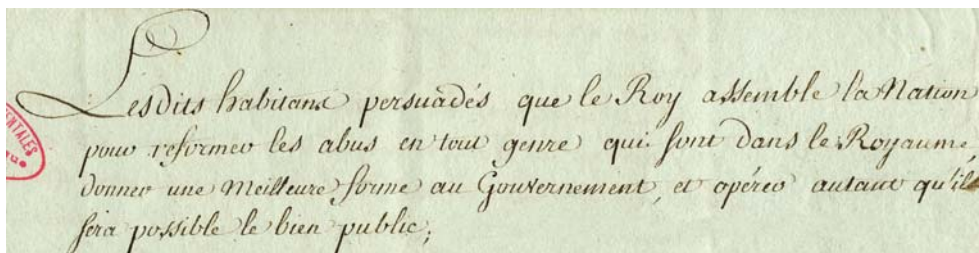 Lesdits habitans persuadés que le Roy assemble la Nation
pour reformer les abus en tout genre qui sont dans le Royaume,
donner une Meilleure forme au Gouvernement, et opérer autant qu'il
sera possible le bien public;